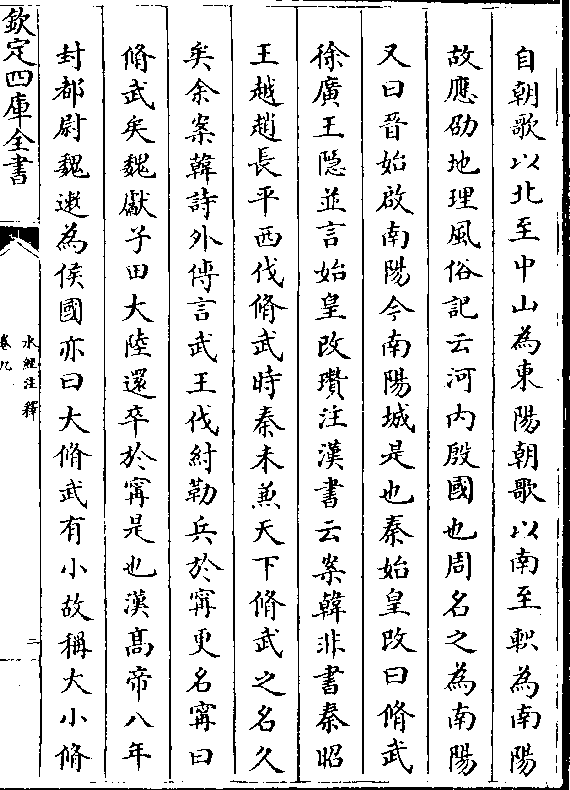 自朝歌以北至中山為東陽朝歌以南至軹為南陽
故應劭地理風俗記云河内殷國也周名之為南陽
又曰晉始啟南陽今南陽城是也秦始皇改曰脩武
徐廣王隱並言始皇改瓚注漢書云案韓非書秦昭
王越趙長平西伐脩武時秦未兼天下脩武之名久
矣余案韓詩外傳言武王伐紂勒兵於甯更名甯曰
脩武矣魏獻子田大陸還卒於甯是也漢高帝八年
封都尉魏遫為侯國亦曰大脩武有小故稱大小脩
欽定四庫全書
水經注釋
卷九
二